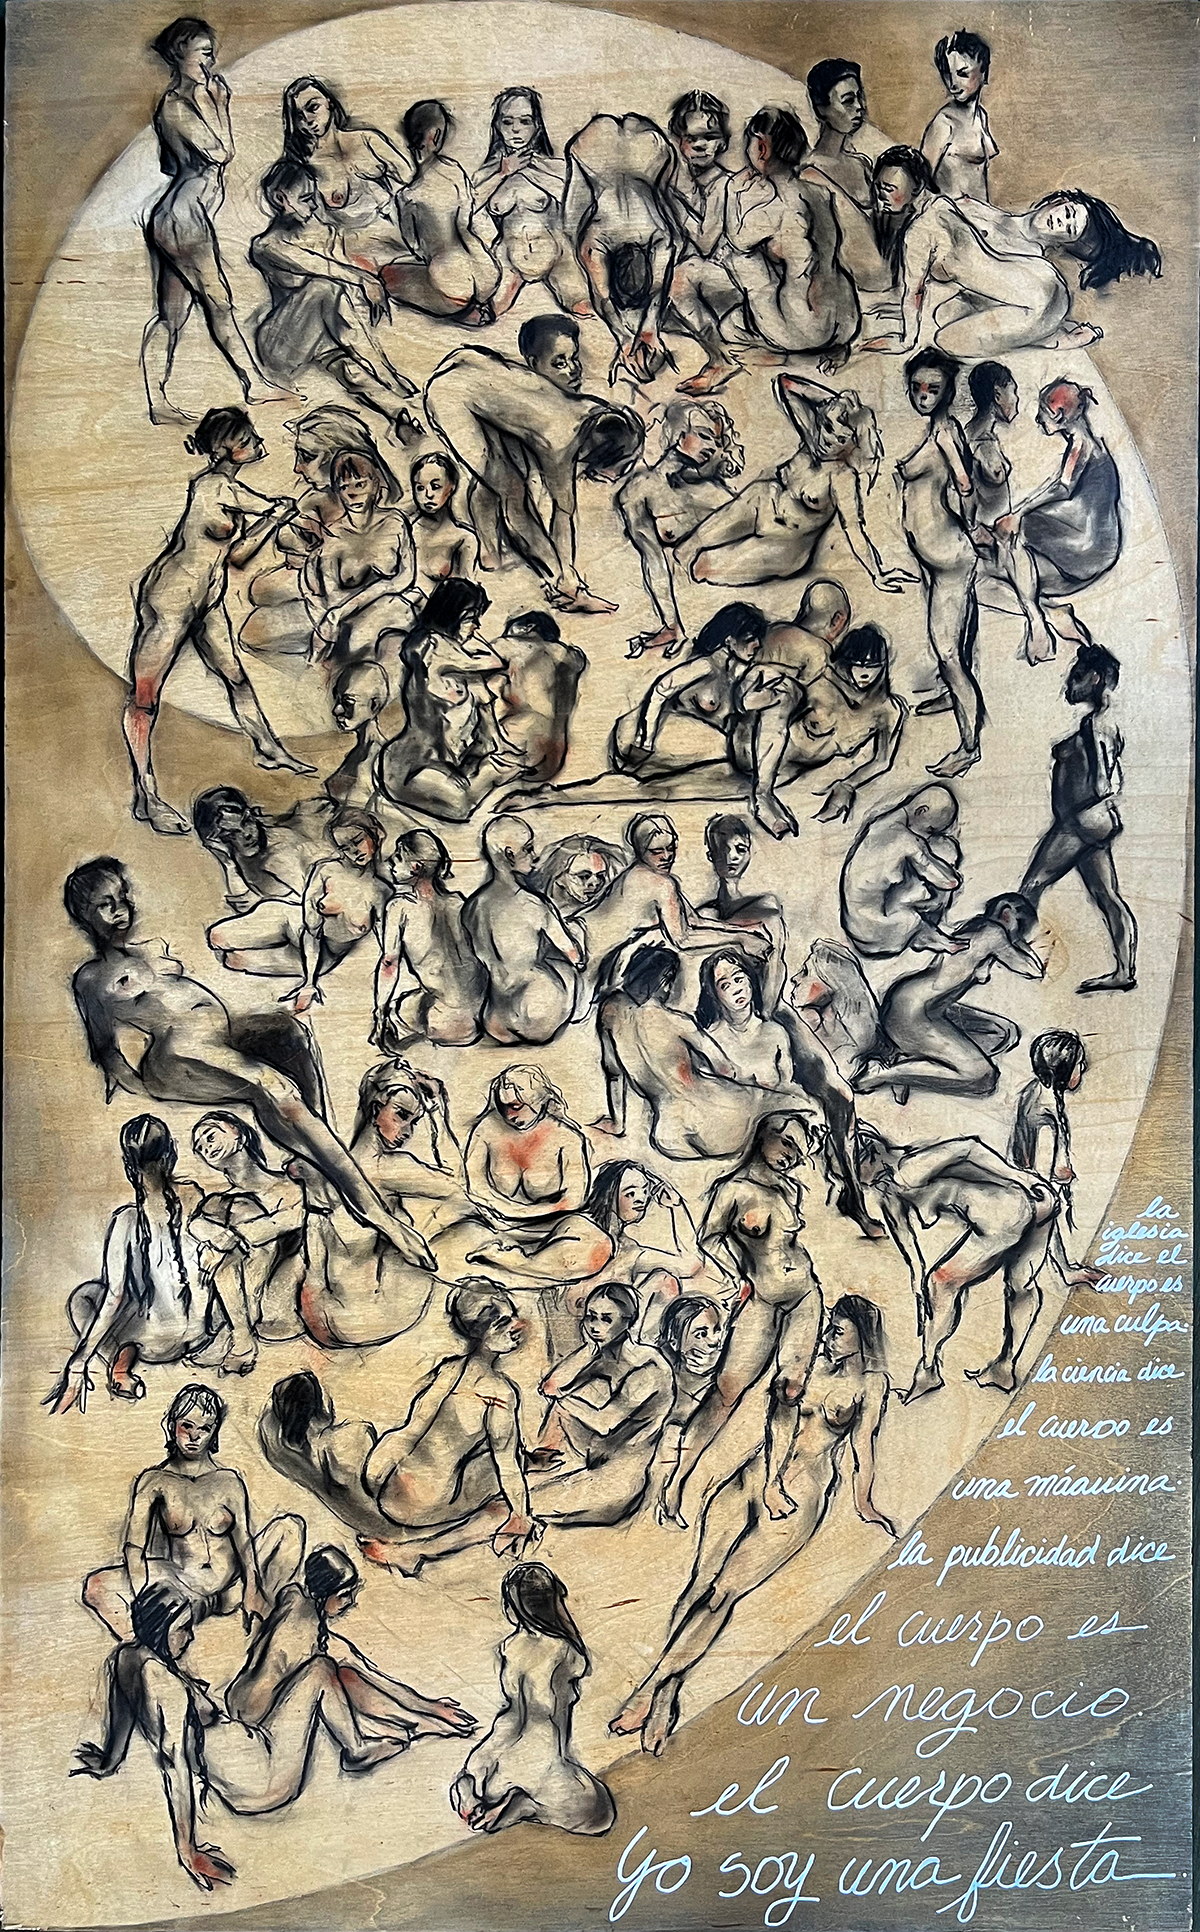 la
iglesia
dice el
cuerpo es
una culpa.
la ciencia dice
el cuerpo es
una máquina.
la publicidad dice
el cuerpo es
un negocio.
el cuerpo dice
yo soy una fiesta.